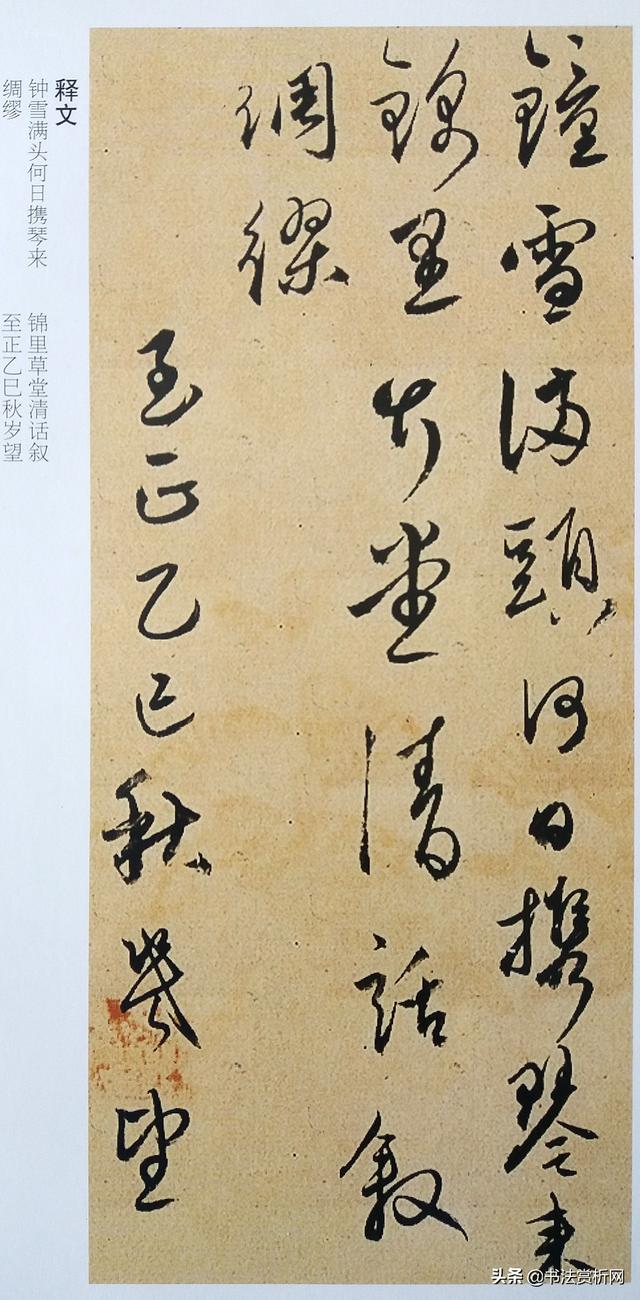 鐘雪滿頭何日攜琴來
錦里草堂清話叙
綢繆
至正乙巳秋歲望
释文
钟雪满头何日携琴来 锦里草堂清话叙
绸缪 至正乙巳秋岁望
头条 @书法赏析网